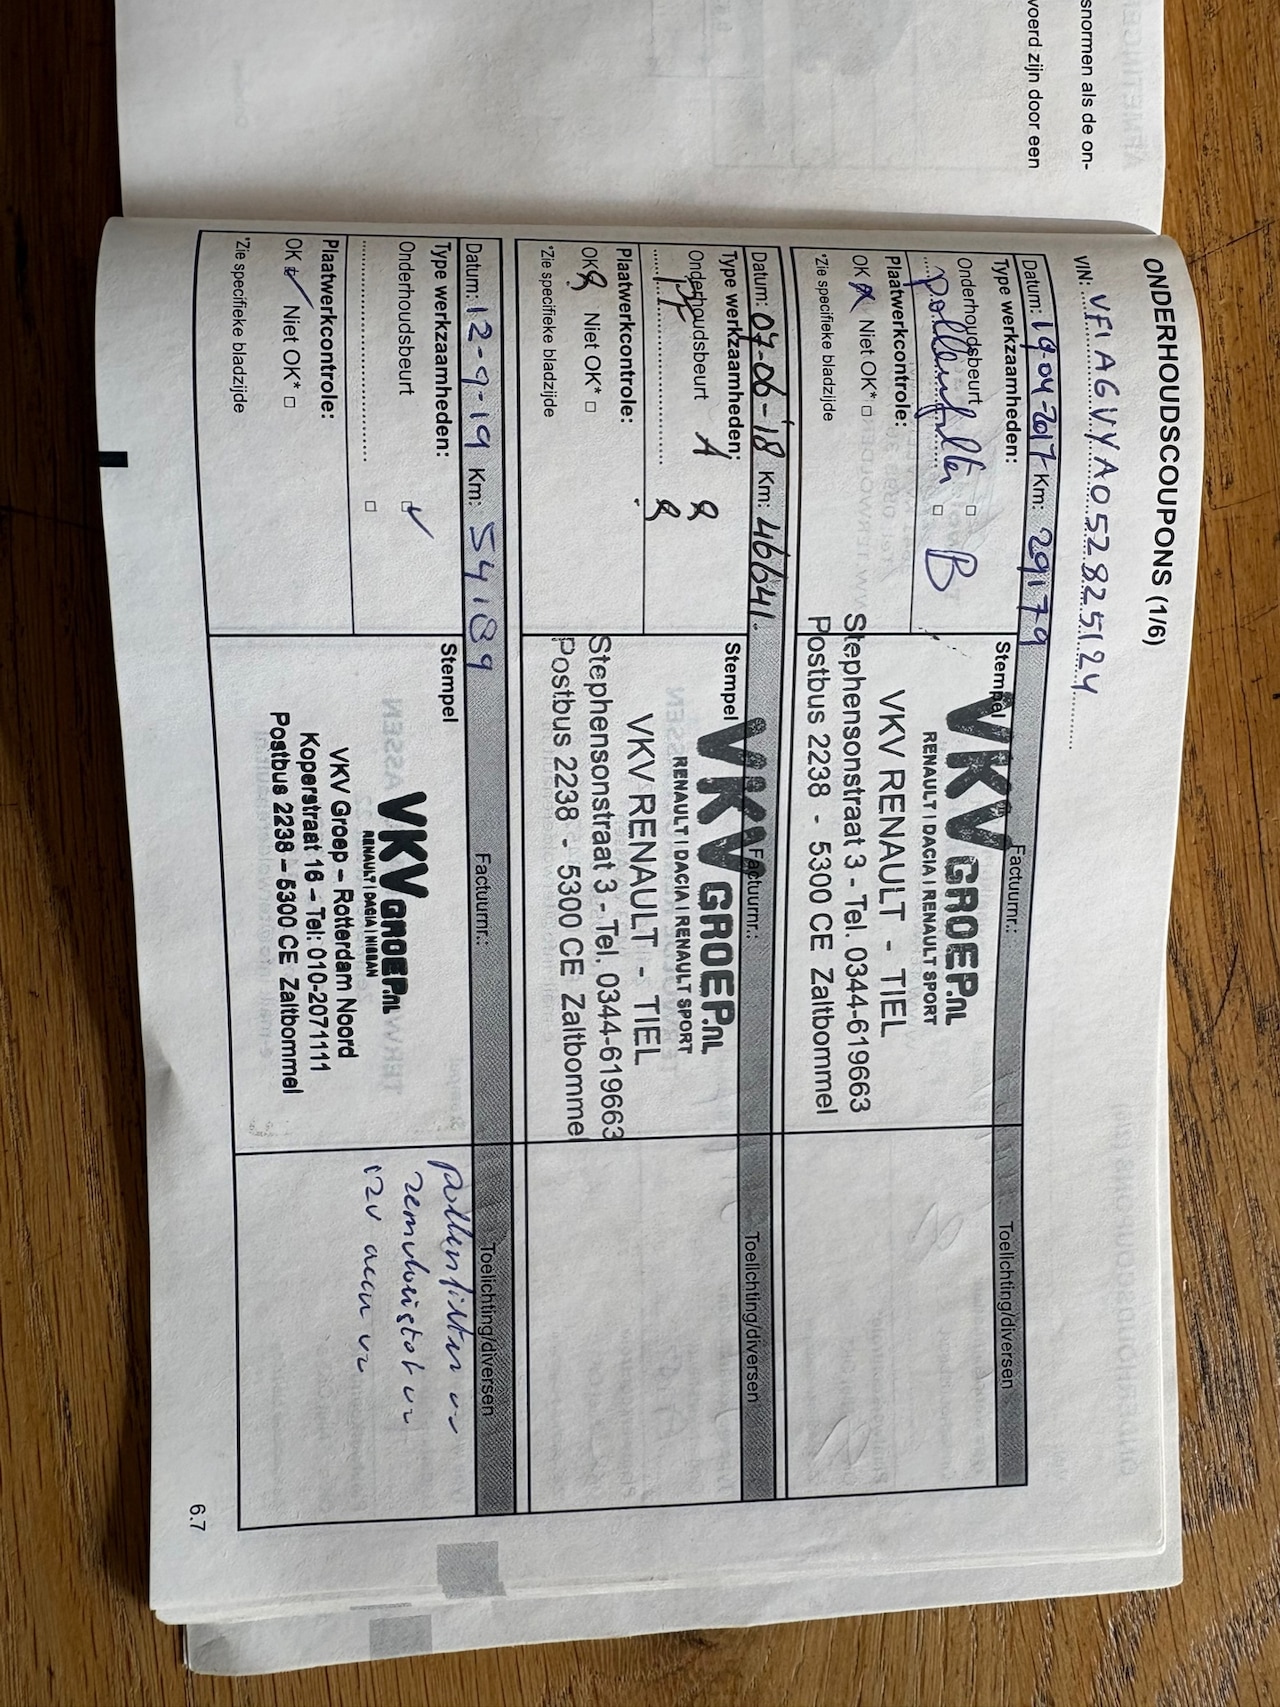 snormen als de on-
voerd zijn door een
ONDERHOUDSCOUPONS (1/6)
VIN: VF1AGVYA052825124
Datum: 19-04-2017 Km: 29179
Factuurnr.:
Toelichting/diversen
Type werkzaamheden:
Onderhoudsbeurt □ B
pollenfilter □
Plaatwerkcontrole:
OK Niet OK* □
*Zie specifieke bladzijde
Stempel
VKV GROEP.nL
RENAULT | DACIA | RENAULT SPORT
VKV RENAULT - TIEL
Stephensonstraat 3 - Tel. 0344-619663
Postbus 2238 - 5300 CE Zaltbommel
Datum: 07-06-'18 Km: 46641.
Factuurnr.:
Toelichting/diversen
Type werkzaamheden:
Onderhoudsbeurt A
PF
Plaatwerkcontrole:
OK Niet OK* □
*Zie specifieke bladzijde
Stempel
VKV GROEP.nL
RENAULT | DACIA | RENAULT SPORT
VKV RENAULT - TIEL
Stephensonstraat 3 - Tel. 0344-619663
Postbus 2238 - 5300 CE Zaltbommel
Datum: 12-9-19 Km: 54189
Factuurnr.:
Toelichting/diversen
Type werkzaamheden:
Onderhoudsbeurt ✓
□
Plaatwerkcontrole:
OK ✓ Niet OK* □
*Zie specifieke bladzijde
Stempel
VKV GROEP.nL
RENAULT | DACIA | NISSAN
VKV Groep – Rotterdam Noord
Koperstraat 16 – Tel: 010-2071111
Postbus 2238 – 5300 CE Zaltbommel
pollenfilter vv
remvloeistof vv
12v accu vv
6.7